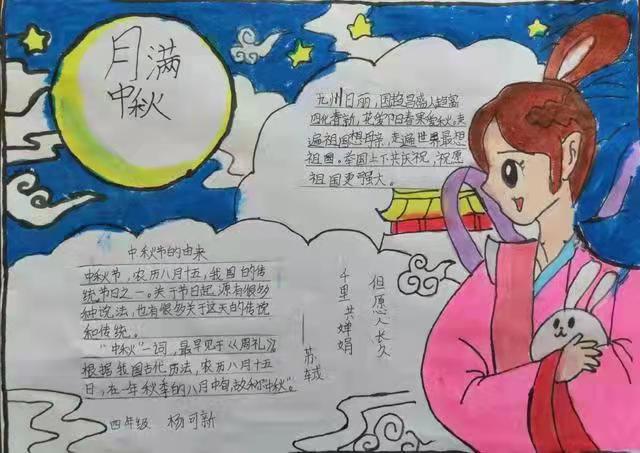 月满
中秋
九州日丽,国趋昌盛人趋富
四化春动,花爱下日春果爱秋,走
遍祖国想母亲,走遍世界最想
祖国。举国上下共庆祝,祝愿
祖国更强大。
中秋节的由来
中秋节,农历八月十五,我国的传
统节日之一。关于节日起源有很多
种说法,也有很多关于这天的传说
和传统。
“中秋”一词,最早见于《周礼》。
根据我国古代历法,农历八月十五
日,在一年秋季的八月中旬,故称“中秋”。
四年级 杨可新
但愿人长久
千里共婵娟
——苏轼